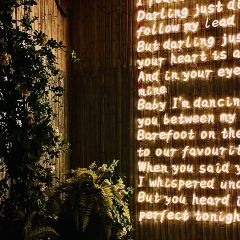 Darling just di
follow my lead
But darling just
your heart is a
And in your eye
mine
Baby I'm dancing
you between my
Barefoot on the
to our favourit
When you said y
I whispered und
But you heard i
perfect tonigh